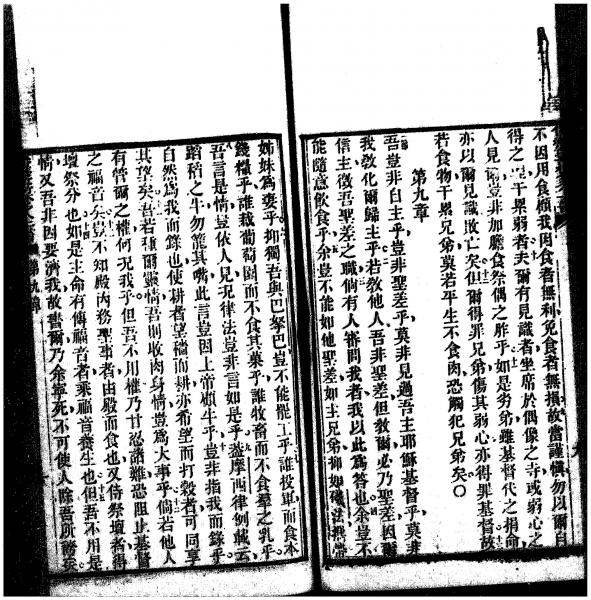 不因用食顧我因食者無利免食者無損故當謹慎勿以爾自
得之干累弱者夫爾有見識者坐席於偶像之寺或弱心之
人見爾豈非加膽食祭偶之胙乎如是劣弟雖基督代之捐命
亦以爾見識敗亡矣但爾得罪兄弟傷其弱心亦得罪基督故
若食物干累兄弟莫若平生不食肉恐觸犯兄弟矣〇
第九章
吾豈非自主乎豈非聖差乎莫非見過吾主耶穌基督乎莫非
我敎化爾歸主乎若敎他人吾非聖差但敎爾必乃聖差因爾
信主徵吾聖差之職倘有人審問我者我以此為答也余豈不
能隨意飲食乎余豈不能如他聖差如主兄弟抑如磯法携帶
姊妹為妻乎抑獨吾與巴拏巴豈不能罷工乎誰投軍而食本
錢糧乎誰栽葡萄園而不食其菓乎誰牧畜而不食羣之乳乎
吾言是情豈依人見况律法豈非言如是乎蓋摩西律例載云
蹈稻之牛勿籠其嘴此言豈因上帝煩牛乎豈非指我而錄乎
自然為我而錄也使耕者望穡而耕亦希望而打穀者可同享
其望矣吾若種爾靈情吾則收肉身情豈為大事乎倘若他人
有管爾之權何况我乎但吾不用權乃甘忍諸難恐阻止基督
之福音矣豈不知殿內務聖事者由殿而食也又侍祭壇者得
壇祭分也如是主命有傳福音者乘福音養生也但吾不用是
情又吾非因要濟我故書爾乃余寧死不可使人除吾所誇矣
第九章